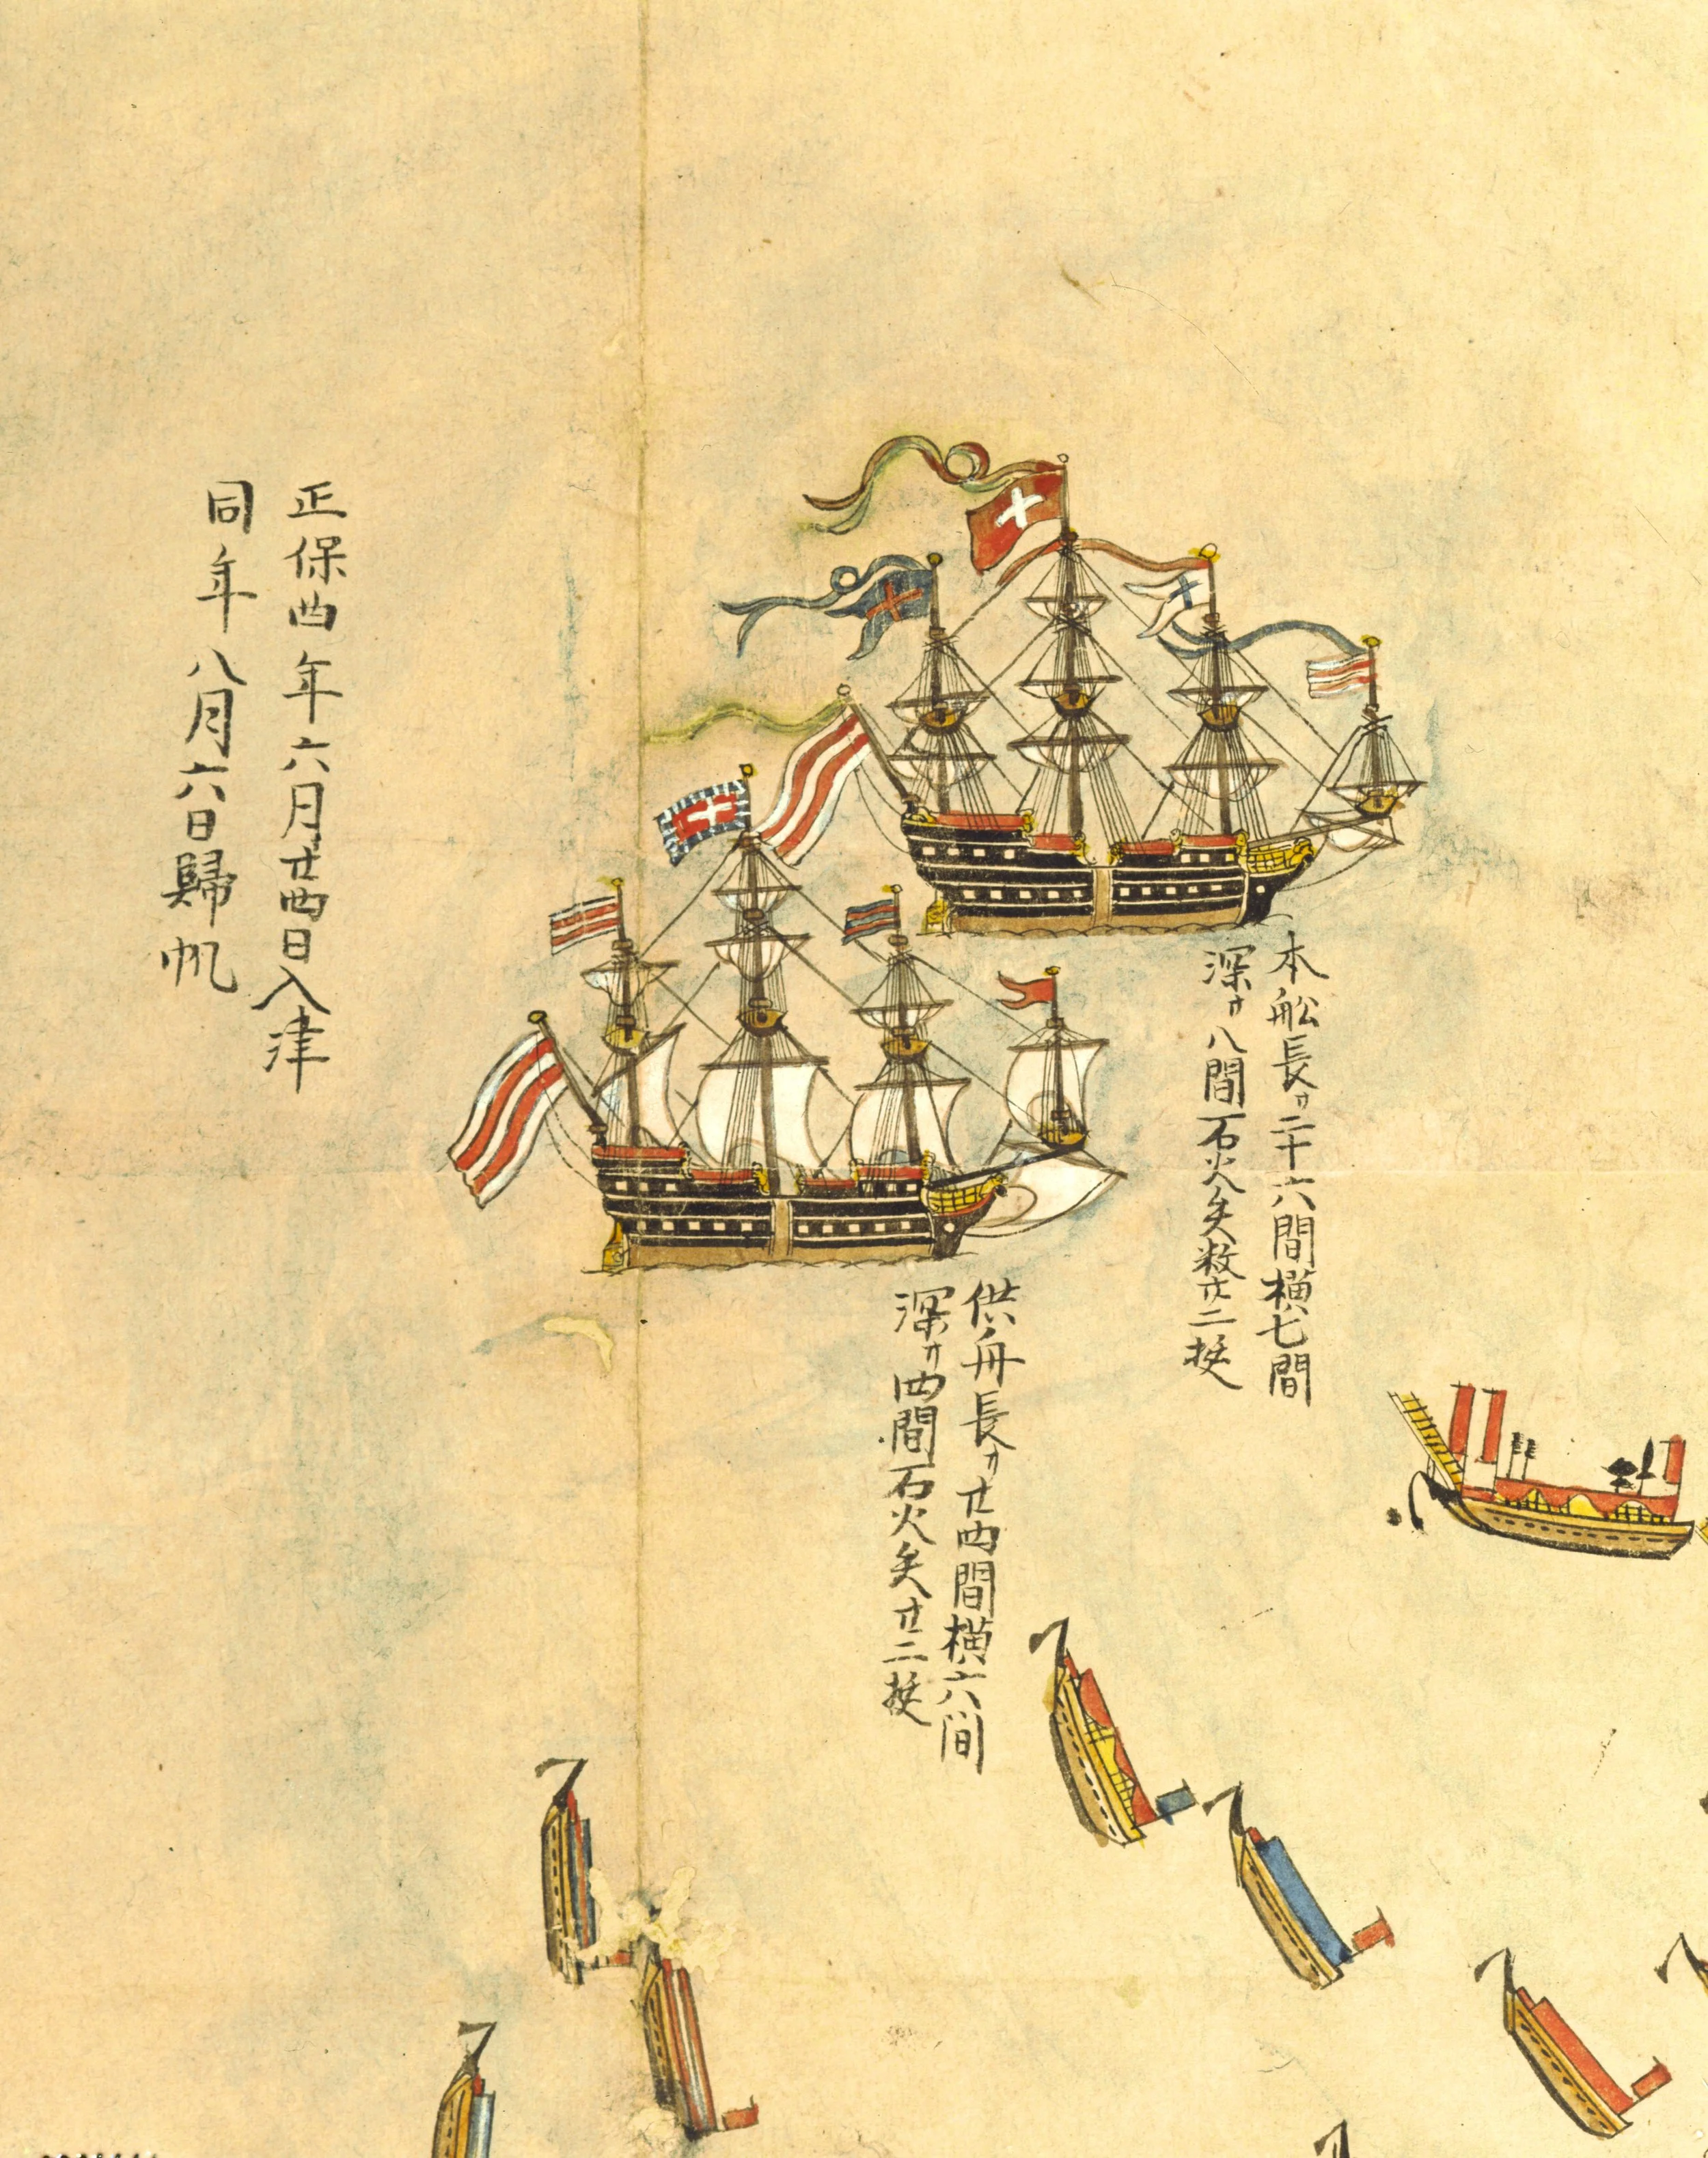 本舩長サ二十六間横七間
深サ八間石火矢数廿二挺
供舟長サ廿四間横六間
深サ四間石火矢廿二挺
正保四年六月廿四日入津
同年八月六日歸帆